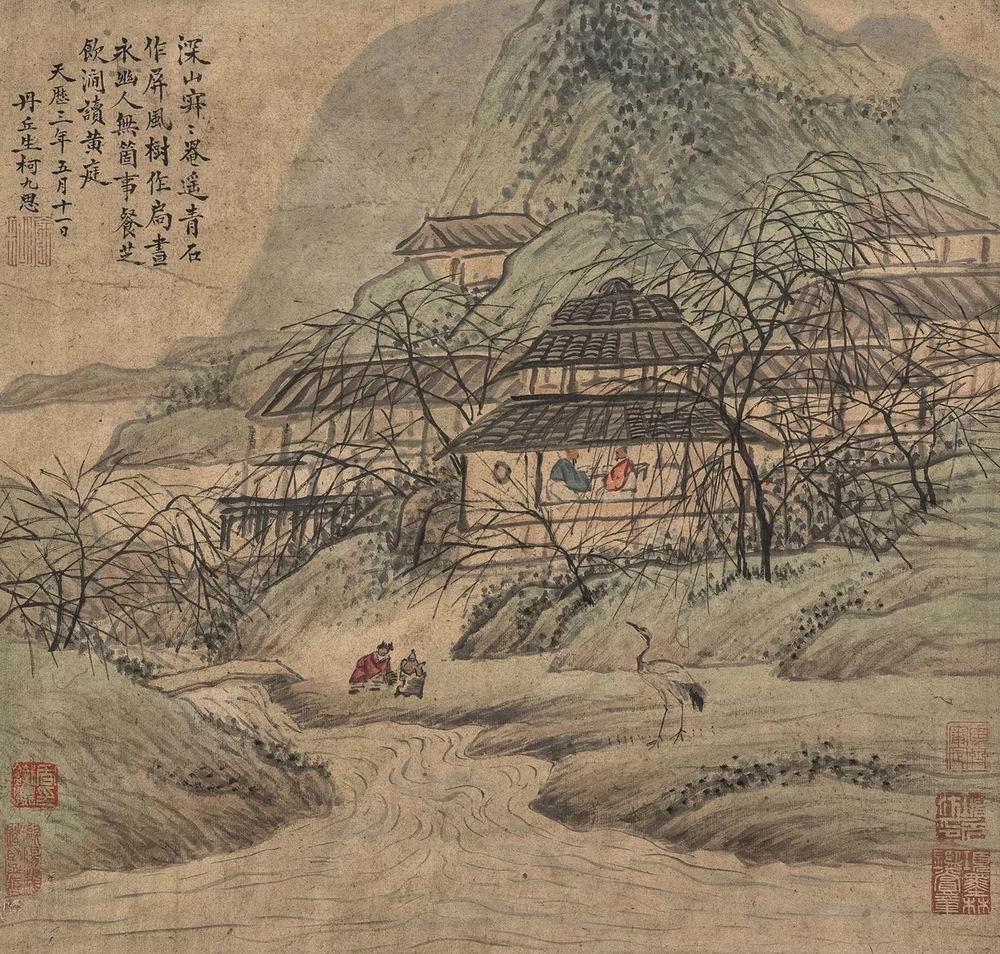 深山寂〻凝遥青石
作屏風樹作扃晝
永幽人無箇事餐芝
飲澗讀黄庭
天歷三年五月十一日
丹丘生柯九思